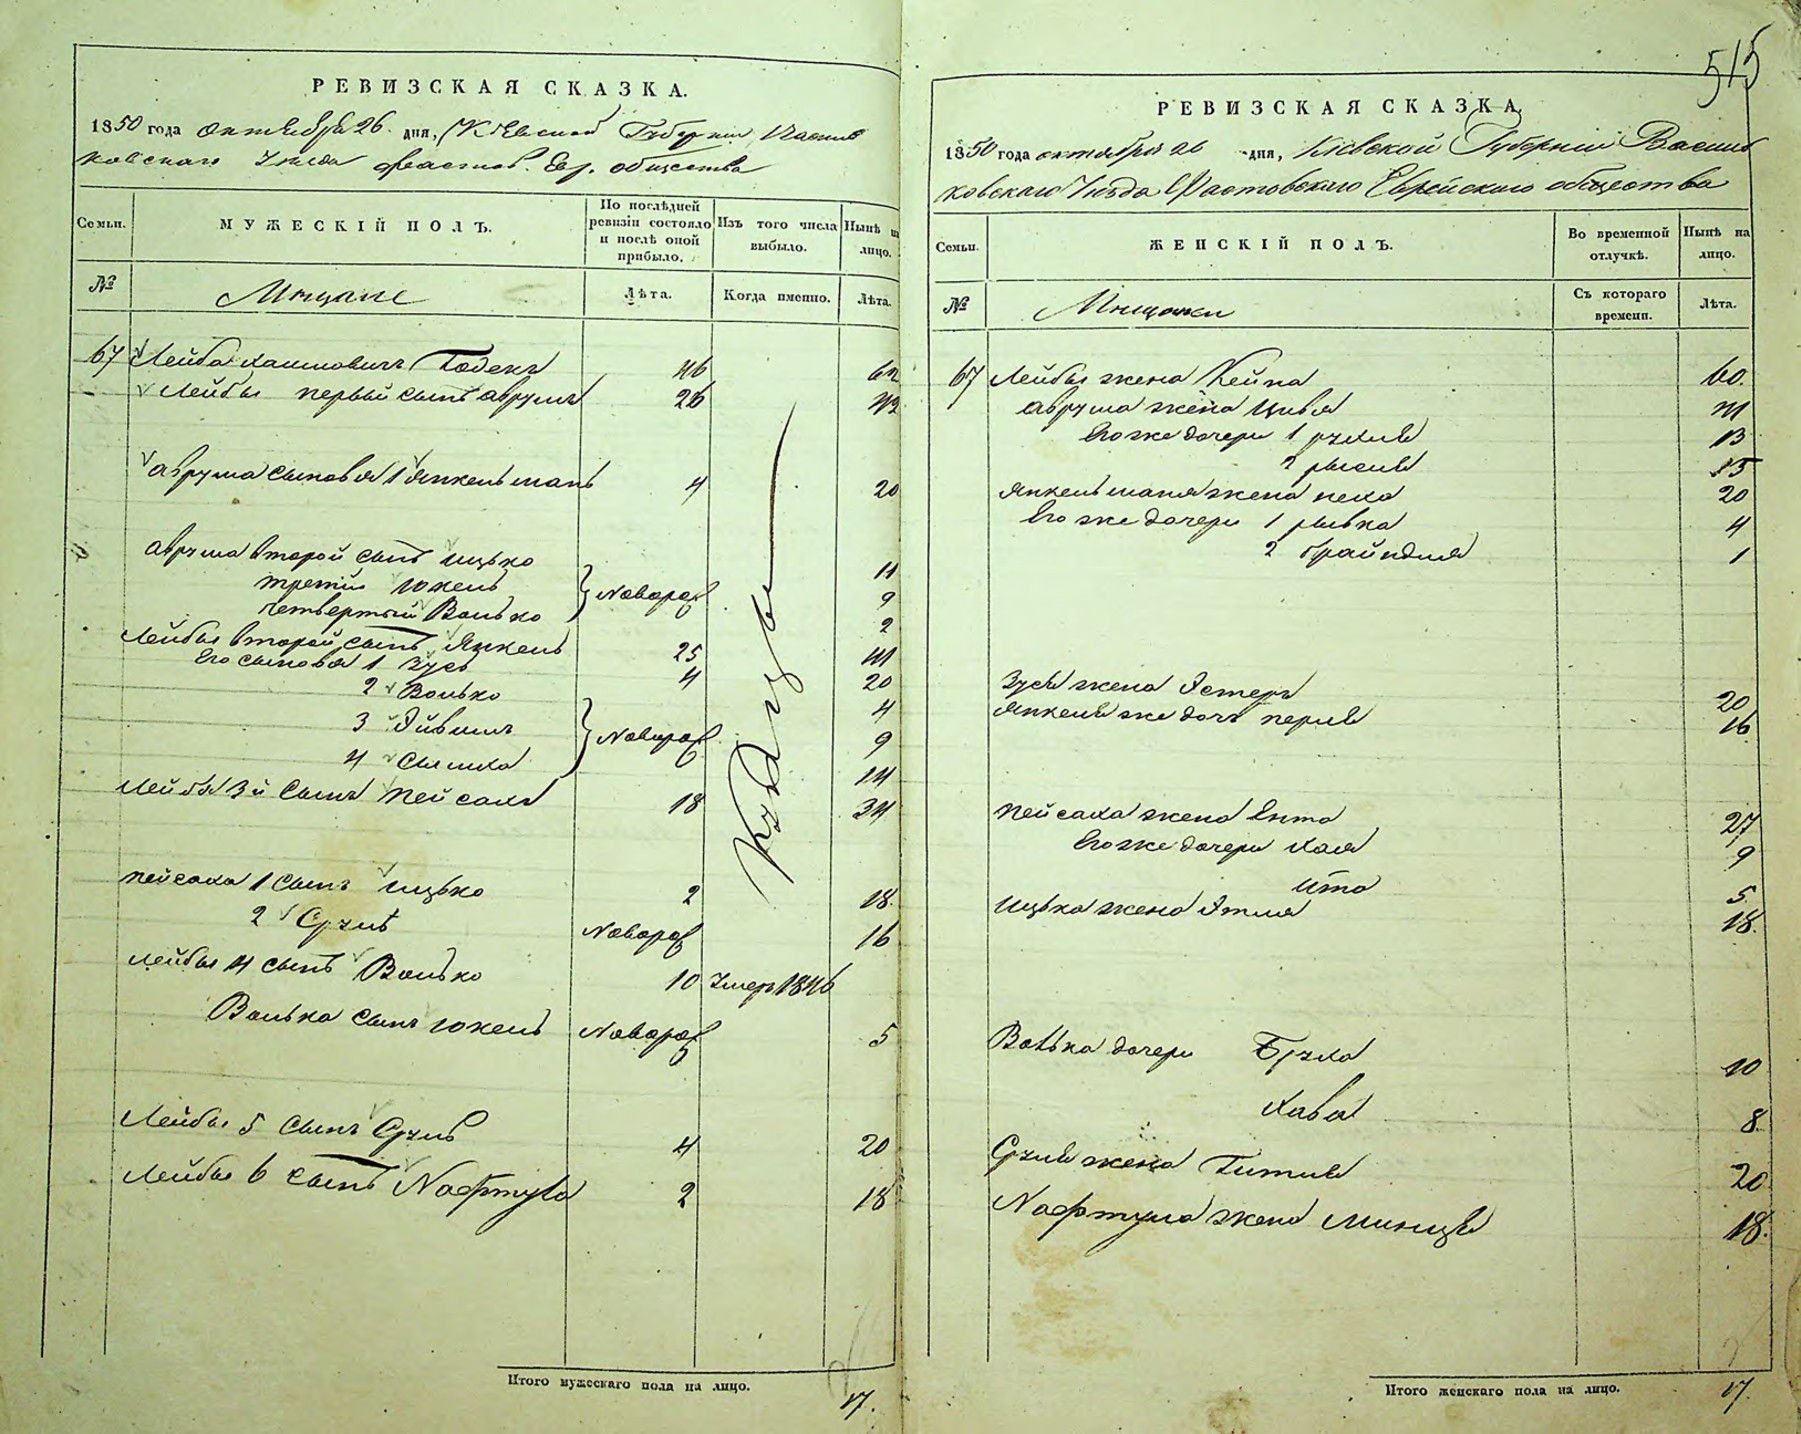 515
РЕВИЗСКАЯ СКАЗКА.
1850 года октября 26 дня, Кіевской Губерніи Василь
ковскаго Уезда Фастов. Евр. общества
Семьи. МУЖЕСКІЙ ПОЛЪ. По послѣдней ревизіи состояло и послѣ оной прибыло. Изъ того числа выбыло. Нынѣ на лицо.
№ Мещане Лѣта. Когда именно. Лѣта.
67 Лейба Хаимовичъ 46 62
Лейбы первый сынъ Аврумъ 26 42
Аврума сыновья 1 Янкель 4 20
Аврума второй сынъ Ицько 11
третій Юкель Новорож 9
четвертый Волько 2
Лейбы второй сынъ Янкель 25 41
Его сыновья 1 Зусь 4 20
2 Волько 4
3 Новорож 9
4 14
Лейбы 3й сынъ Пейсахъ 18 34
Пейсаха 1 сынъ Ицько 2 18.
2 Сруль Новорож 16
Лейбы 4 сынъ Волько 10 Умеръ 1846
Волька сынъ Юкель Новорож 5
Лейбы 5 сынъ Сруль 4 20
Лейбы 6 сынъ Нафтула 2 18
Итого мужескаго пола на лицо. 17.
РЕВИЗСКАЯ СКАЗКА.
1850 года октября 26 дня, Кіевской Губерніи Василь
ковскаго Уезда Фастовскаго Еврейскаго общества
Семьи. ЖЕНСКІЙ ПОЛЪ. Во временной отлучкѣ. Нынѣ на лицо.
№ Мещанки Съ котораго времени. Лѣта.
67 Лейбы жена Кейла 60.
Аврума жена Цивья 41
Его же дочери 1 Рухля 13
2 15
жена 20
Его же дочери 1 Рывка 4
2 Брайндля 1
Зуся жена Эстеръ 20
Янкеля же дочь Перля 16
Пейсаха жена Ента 27
Его же дочери Хая 9
Ита 5
Ицька жена Этля 18.
Волька дочери Бруха 10
Хава 8.
Сруля жена Гитля 20
Нафтула жена Минця 18.
Итого женскаго пола на лицо. 17.